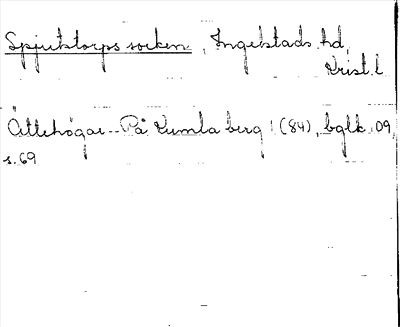 Spjutstorps socken, Ingelstads hd,
Krist. l
Ättehögar - På Kumla berg (84), bglk 09,
s. 69